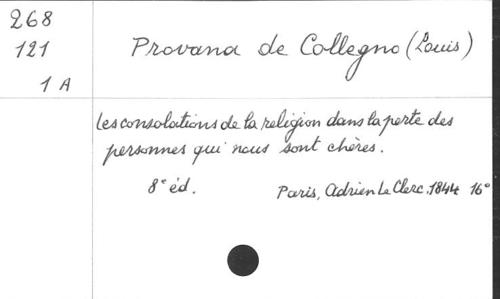 268
121
1 A
Provana de Collegno (Louis)
Les consolations de la religion dans la perte des
personnes qui nous sont chères.
8e éd. Paris, Adrien Le Clerc. 1844 16°